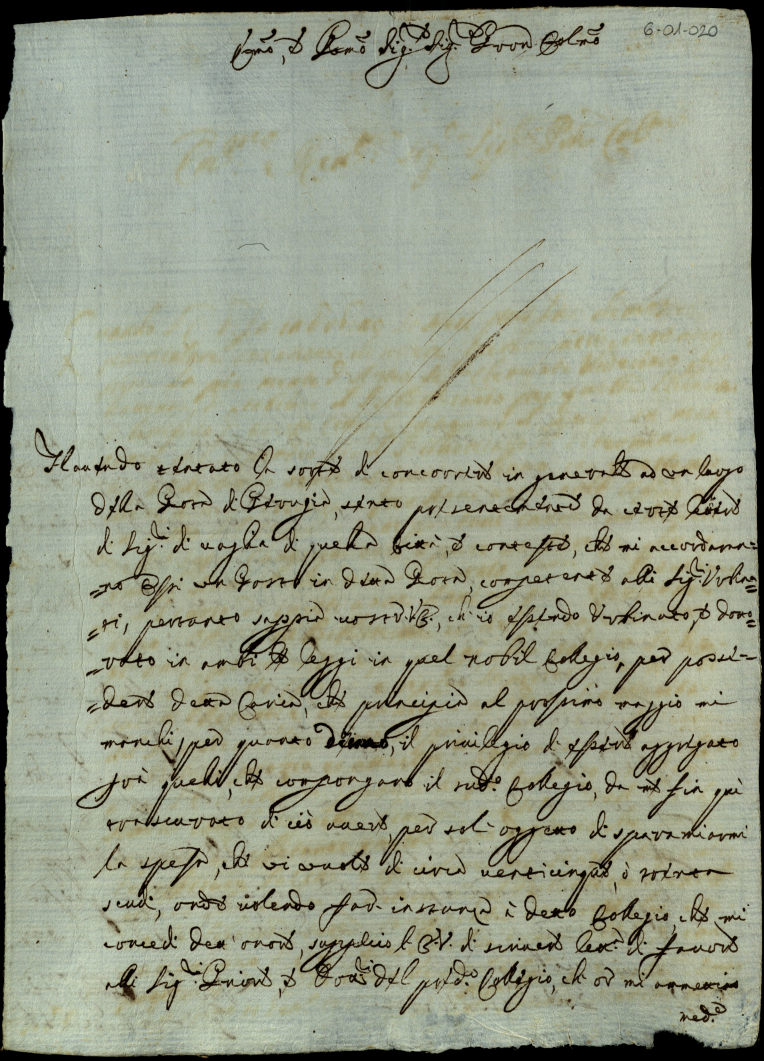 6-01-020
Sig.r Sig.r Pron Colmo
Havendo tentato la sorte di concorrere in generale ad un luogo
della Rota di Perugia, sento da
di Sig.ri di vaglia di quella Città, e contesto, che mi accordaran=
=no Essi un Posto in detta Rota, competente alli Sig.ri Urbina=
=ti, pertanto sappia vostr' Ecc., ch' io essendo Urbinato, e dotto=
=rato in ambi le leggi in quel nobil Collegio, per posse=
=dere detta Carica, che principia al prossimo maggio mi
manchi, per quanto il privilegio di essere aggregato
frà quelli, che compongano il sud.o Collegio, da me fin quì
trascurato di ciò avere, per sol' oggetto di sparamiarmi
la spesa, che vi vuole di circa venticinque, ò trenta
scudi, onde volendo far instanza à detto Collegio che mi
concedi det' onore, supplico l' E. V. di scrivere lett.a di favore
alli Sig.ri Priore, e Dott.ri del pred.o Collegio, ch' or mi
med.o